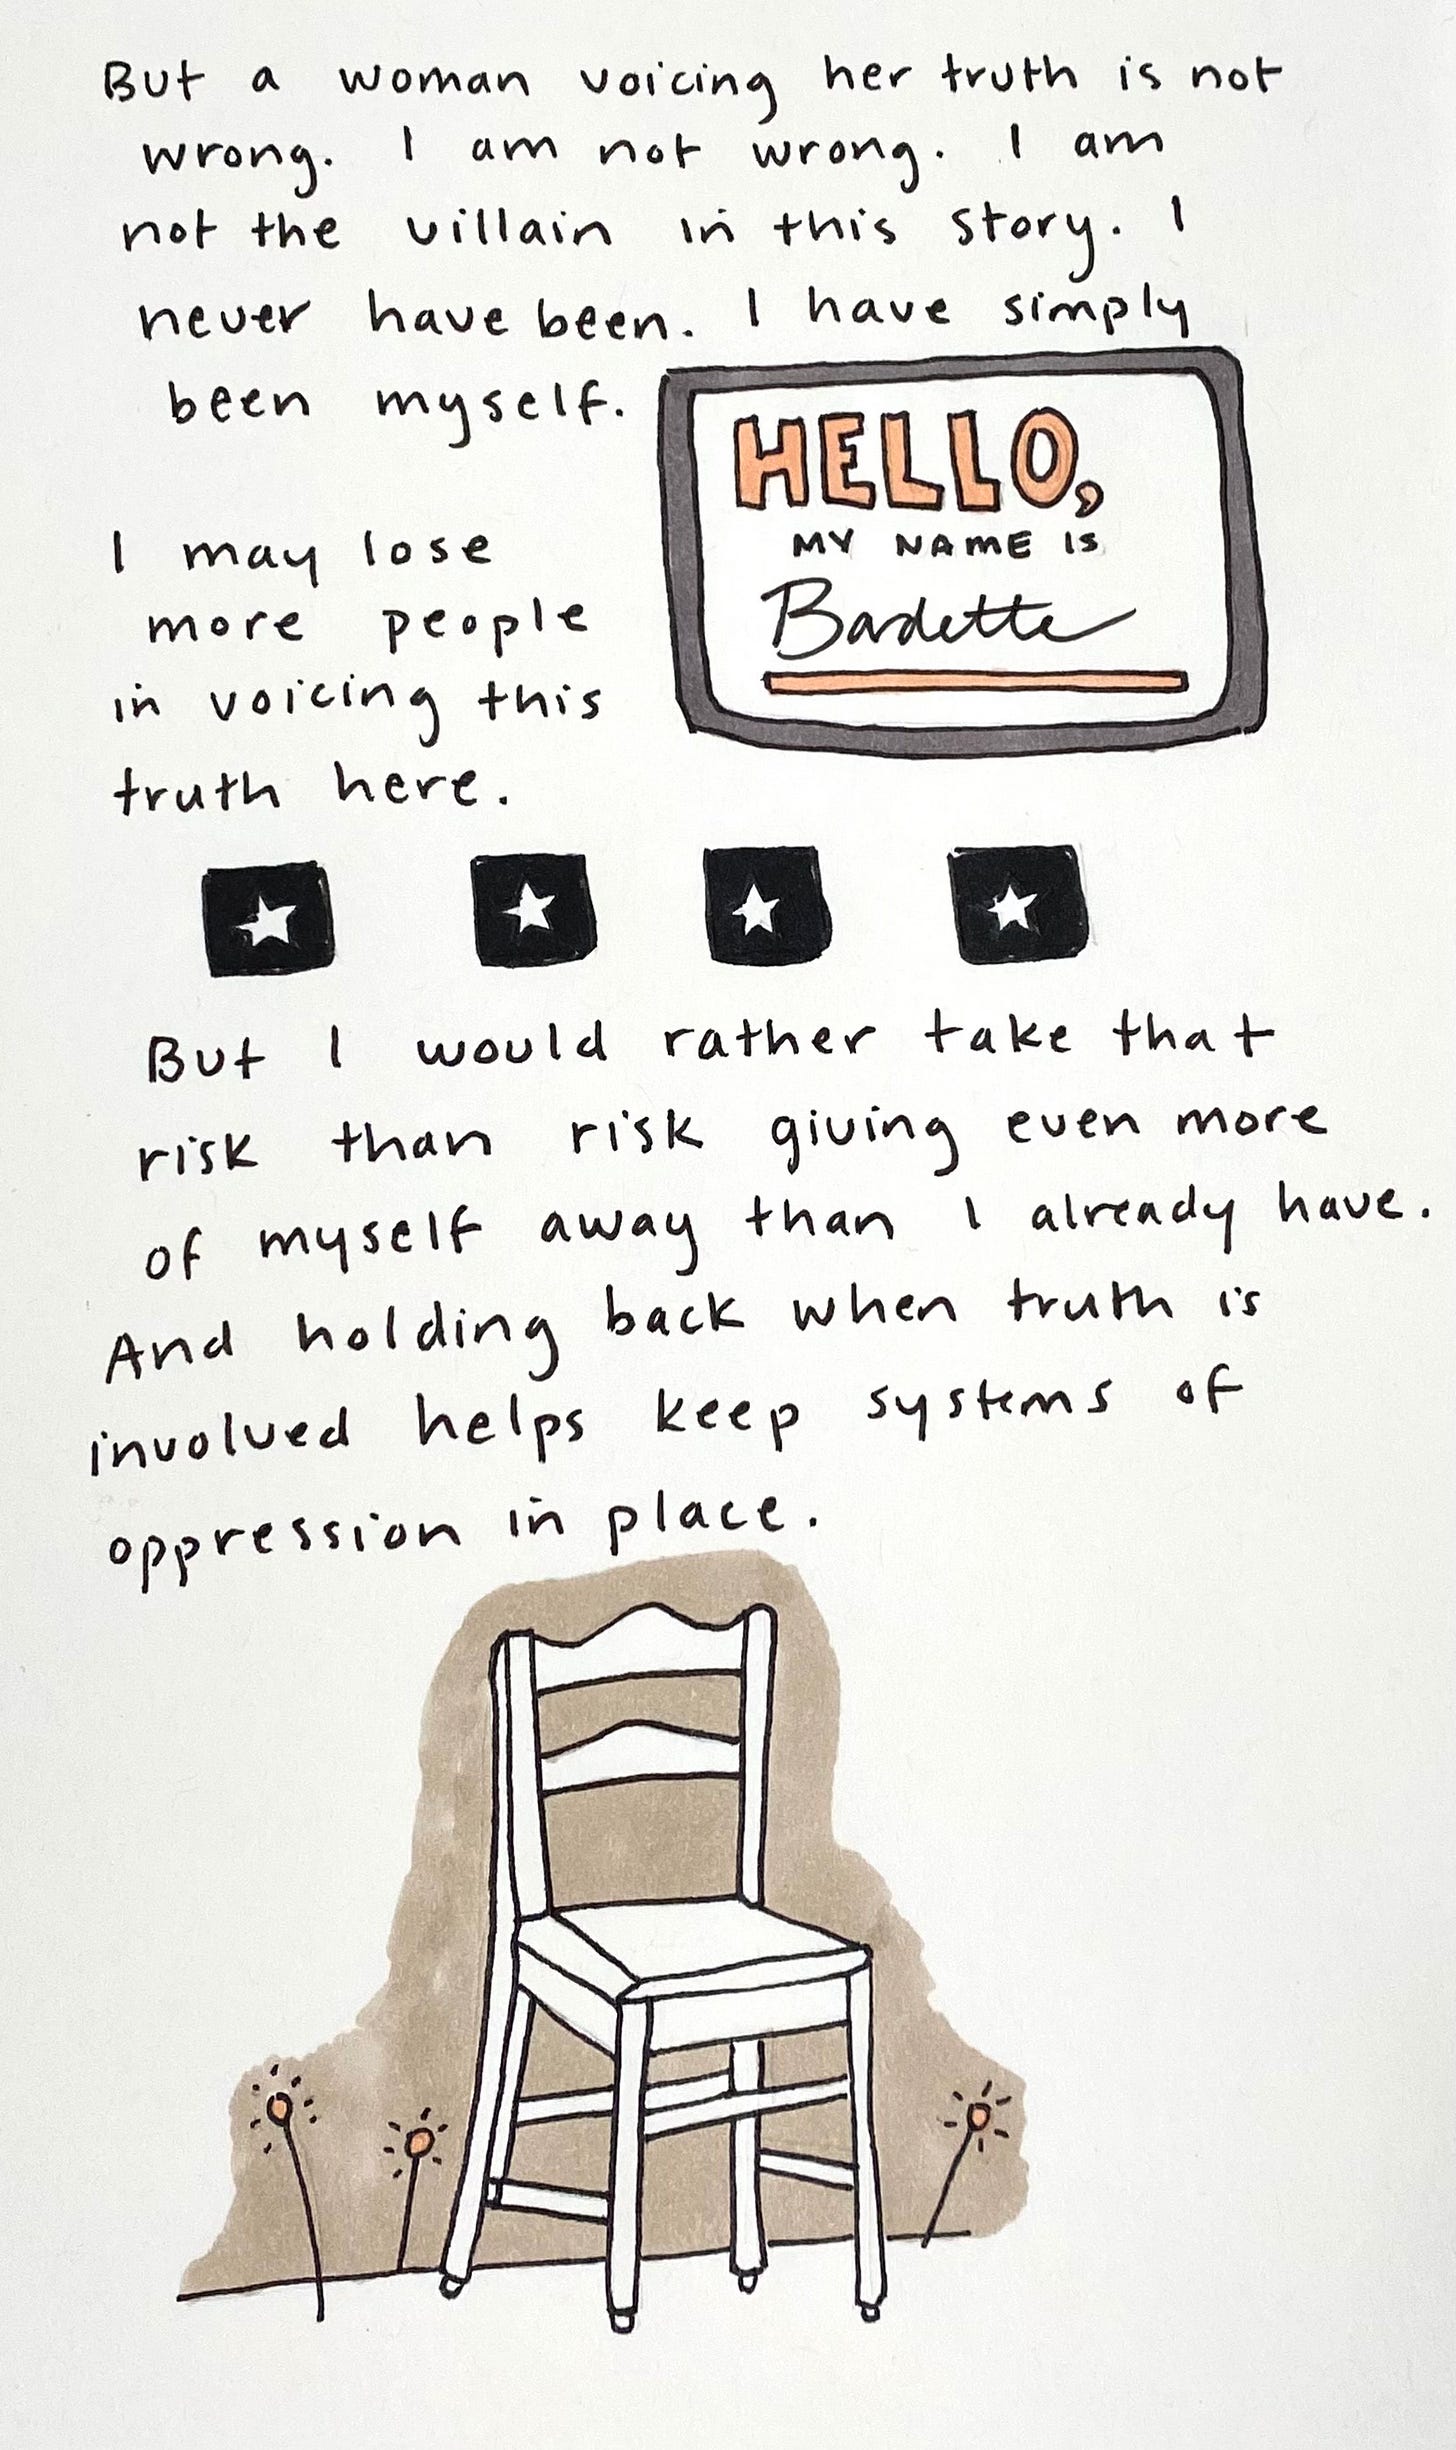 But a woman voicing her truth is not
wrong. I am not wrong. I am
not the villain in this story. I
never have been. I have simply
been myself.
HELLO,
MY NAME IS
Badette
I may lose
more people
in voicing this
truth here.
But I would rather take that
risk than risk giving even more
of myself away than I already have.
And holding back when truth is
involved helps keep systems of
oppression in place.